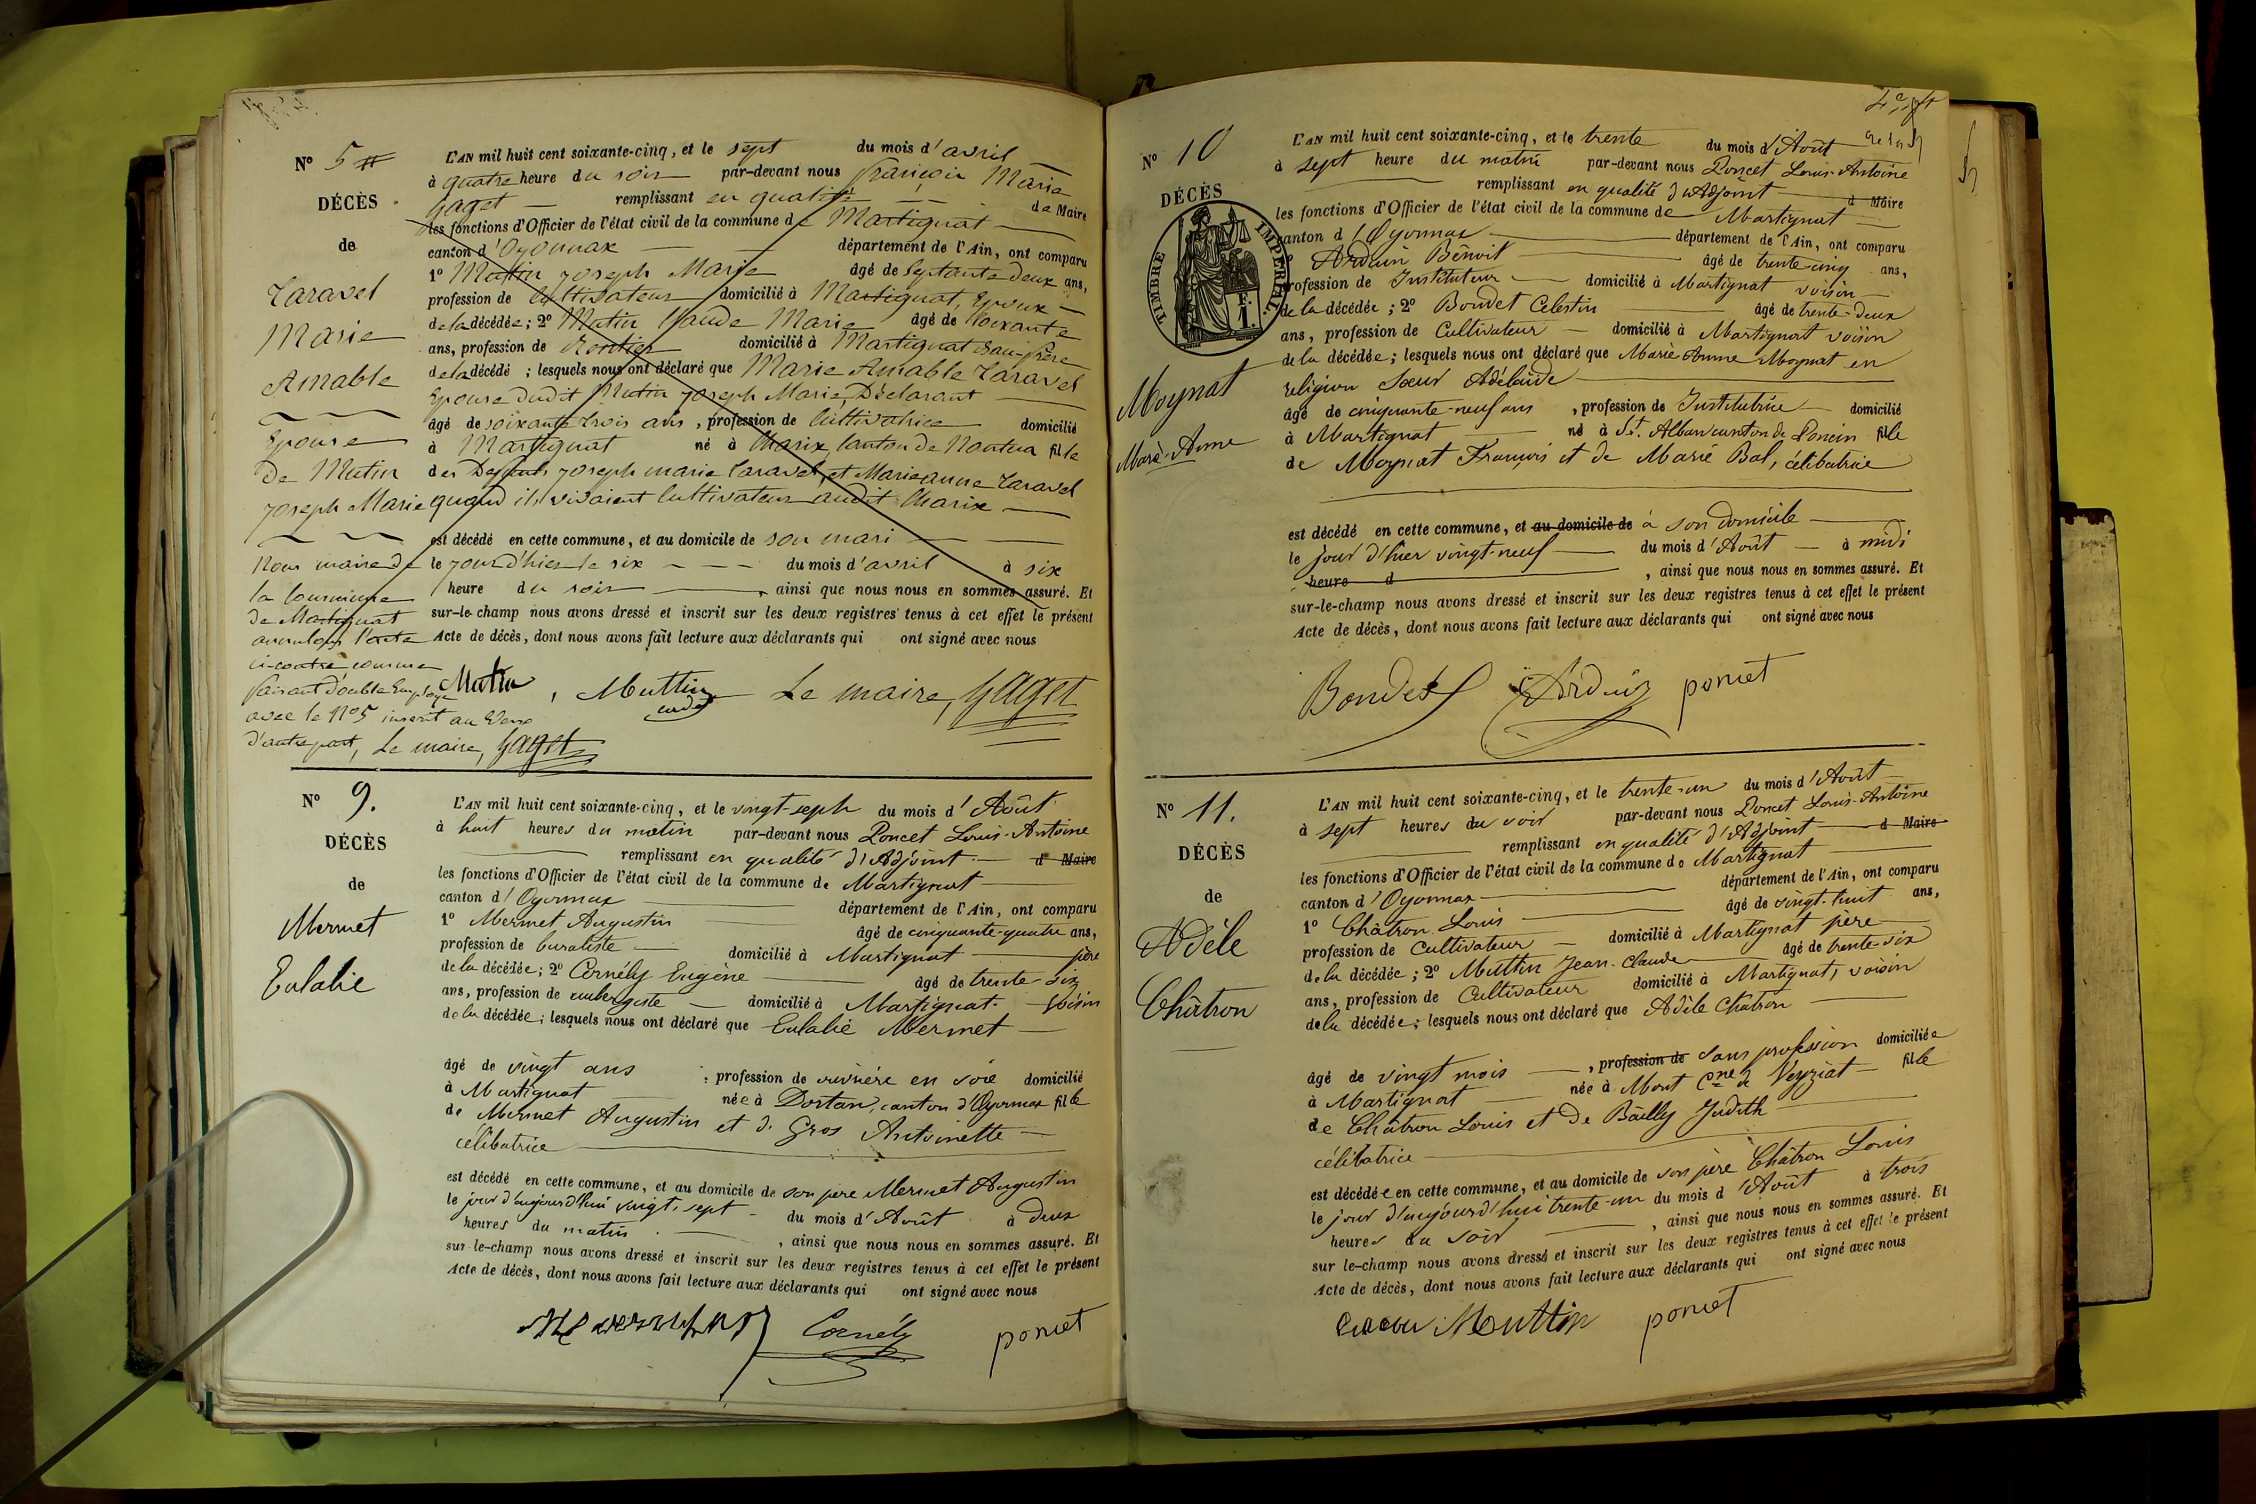 N° 5
DÉCÈS
de
Caravel
Marie
Amable
Epouse
de Mutin
Joseph Marie
Nous maire de
la commune
de Martignat
annulons l'acte
ci-contre comme
faisant double Employ
avec le N°5 inscrit au Verso
d'autre part, Le maire, Gaget
L'AN mil huit cent soixante-cinq, et le sept du mois d'avril
à quatre heure du soir par-devant nous François Marie
Gaget remplissant en qualité de Maire
les fonctions d'Officier de l'état civil de la commune de Martignat
canton d'Oyonnax département de l'Ain, ont comparu
1° Mutin Joseph Marie âgé de Septante deux ans,
profession de Cultivateur domicilié à Martignat, Epoux
de la décédée; 2° Mutin Claude Marie âgé de Soixante
ans, profession de Rentier domicilié à Martignat Beau-frère
de la décédé ; lesquels nous ont déclaré que Marie Amable Caravel
Epouse dudit Mutin Joseph Marie, Déclarant
âgé de soixante trois ans, profession de Cultivatrice domicilié
à Martignat né à Charix Canton de Nantua fille
des Defunts Joseph marie Caravel, et Marie anne Caravel
quand ils vivaient Cultivateurs audit Charix
est décédé en cette commune, et au domicile de son mari
le jour d'hier le six du mois d'avril à six
heure du soir , ainsi que nous nous en sommes assuré. Et
sur-le-champ nous avons dressé et inscrit sur les deux registres tenus à cet effet le présent
Acte de décès, dont nous avons fait lecture aux déclarants qui ont signé avec nous
Mutin, Muttin Le maire, Gaget
N° 9.
DÉCÈS
de
Mermet
Eulalie
L'AN mil huit cent soixante-cinq, et le vingt-sept du mois d'Août
à huit heures du matin par-devant nous Poncet Louis-Antoine
remplissant en qualité d'Adjoint d Maire
les fonctions d'Officier de l'état civil de la commune de Martignat
canton d'Oyonnax département de l'Ain, ont comparu
1° Mermet Augustin âgé de cinquante-quatre ans,
profession de buraliste domicilié à Martignat père
de la décédée; 2° Cornély Eugène âgé de trente-six
ans, profession de aubergiste domicilié à Martignat Voisin
de la décédée; lesquels nous ont déclaré que Eulalie Mermet
âgé de vingt ans , profession de ouvrière en soie domicilié
à Martignat née à Dortan, canton d'Oyonnax fille
de Mermet Augustin et de Gros Antoinette
célibatrice
est décédé en cette commune, et au domicile de son père Mermet Augustin
le jour d'aujourd'hui vingt-sept du mois d'Août à deux
heures du matin , ainsi que nous nous en sommes assuré. Et
sur-le-champ nous avons dressé et inscrit sur les deux registres tenus à cet effet le présent
Acte de décès, dont nous avons fait lecture aux déclarants qui ont signé avec nous
Cornély poncet
N° 10
DÉCÈS
TIMBRE IMPÉRIAL
Moynat
Marie-Anne
L'AN mil huit cent soixante-cinq, et le trente du mois d'Août
à sept heure du matin par-devant nous Poncet Louis-Antoine
remplissant en qualité d'Adjoint d Maire
les fonctions d'Officier de l'état civil de la commune de Martignat
canton d'Oyonnax département de l'Ain, ont comparu
Arduin Benoit âgé de trente-cinq ans,
profession de Instituteur domicilié à Martignat voisin
de la décédée ; 2° Boudet Célestin âgé de trente-deux
ans, profession de Cultivateur domicilié à Martignat voisin
de la décédée; lesquels nous ont déclaré que Marie Anne Moynat en
religion Sœur Adélaïde
âgé de cinquante-neuf ans , profession de Institutrice domicilié
à Martignat né à St. Alban canton de Poncin fille
de Moynat François et de Marie Bal, célibatrice
est décédé en cette commune, et au domicile de à son domicile
le jour d'hier vingt-neuf du mois d'Août à midi
heure d , ainsi que nous nous en sommes assuré. Et
sur-le-champ nous avons dressé et inscrit sur les deux registres tenus à cet effet le présent
Acte de décès, dont nous avons fait lecture aux déclarants qui ont signé avec nous
Boudet Arduin poncet
N° 11.
DÉCÈS
de
Adèle
Châtron
L'AN mil huit cent soixante-cinq, et le trente-un du mois d'Août
à sept heures du soir par-devant nous Poncet Louis-Antoine
remplissant en qualité d'Adjoint d Maire
les fonctions d'Officier de l'état civil de la commune de Martignat
canton d'Oyonnax département de l'Ain, ont comparu
1° Châtron Louis âgé de vingt-huit ans,
profession de Cultivateur domicilié à Martignat père
de la décédée ; 2° Muttin Jean-Claude âgé de trente-six
ans, profession de Cultivateur domicilié à Martignat, voisin
de la décédée; lesquels nous ont déclaré que Adèle Chatron
âgé de vingt mois , profession de sans profession domiciliée
à Martignat née à Mont Cne de Veyziat fille
de Châtron Louis et de Bailly Judith
célibatrice
est décédée en cette commune, et au domicile de son père Châtron Louis
le jour d'aujourd'hui trente-un du mois d'Août à trois
heures du soir , ainsi que nous nous en sommes assuré. Et
sur le-champ nous avons dressé et inscrit sur les deux registres tenus à cet effet le présent
Acte de décès, dont nous avons fait lecture aux déclarants qui ont signé avec nous
Muttin poncet